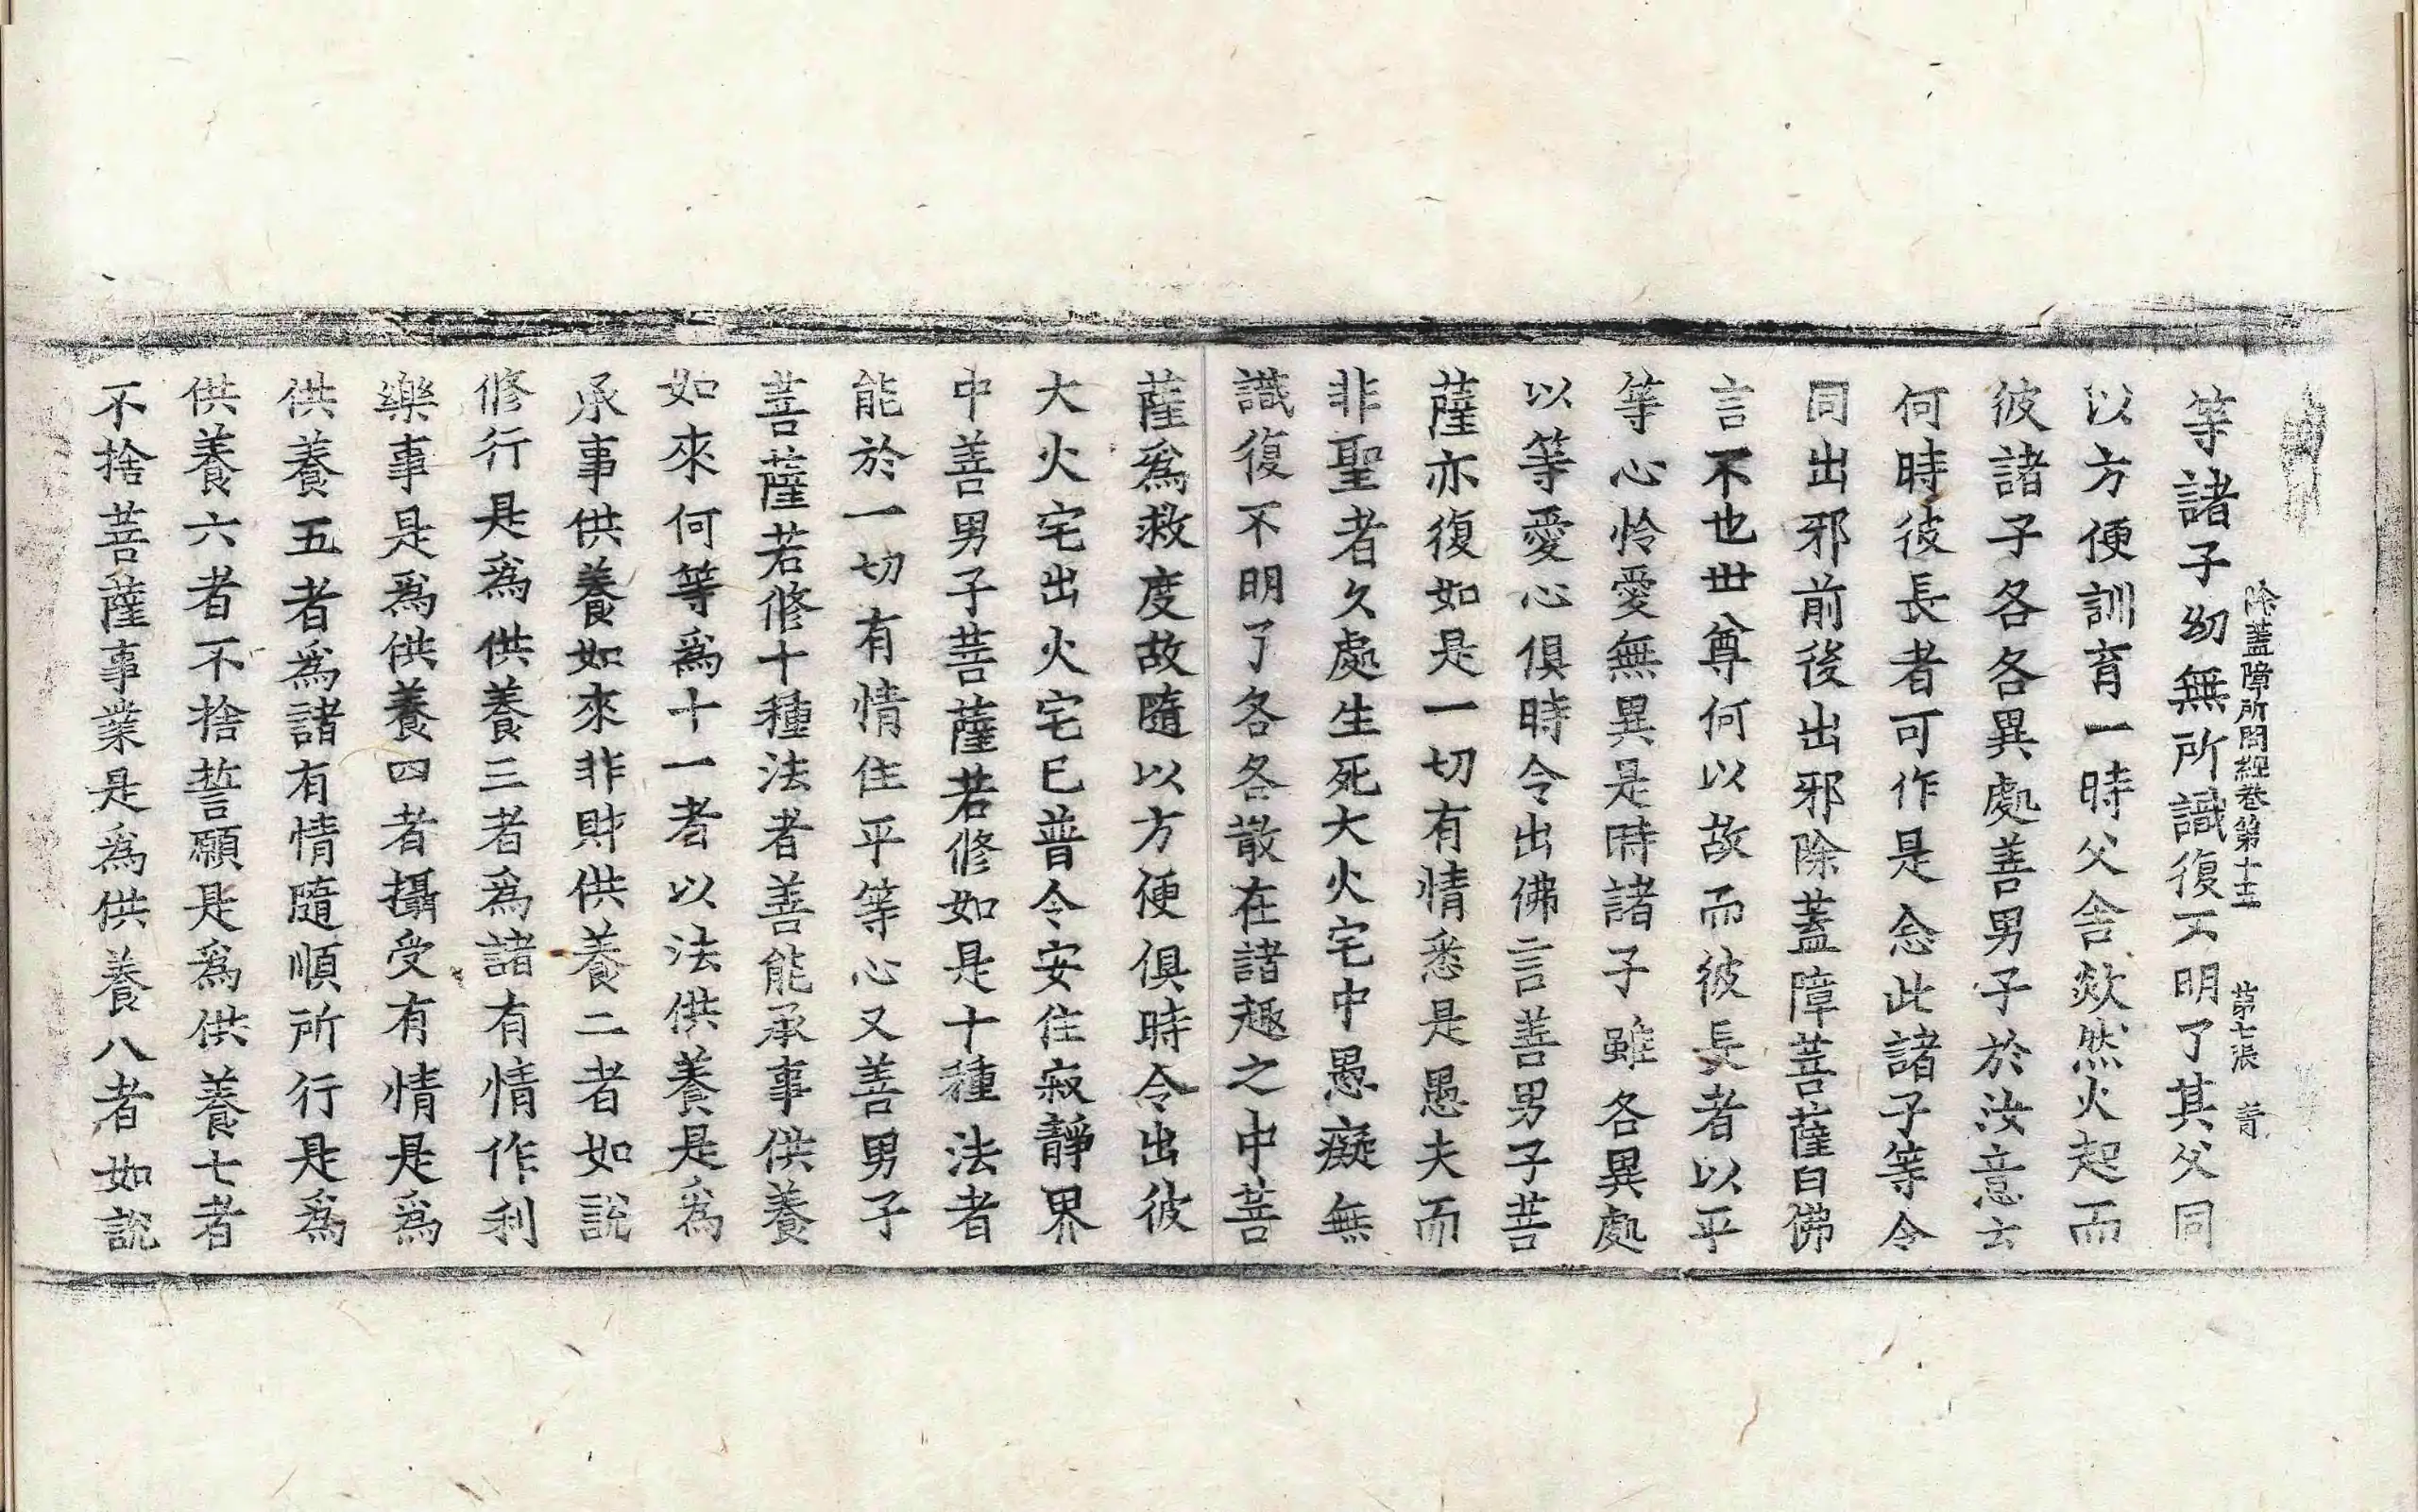 除蓋障所問經卷第十三 第七張 菁
等諸子幼無所識復不明了其父同
以方便訓育一時父舍欻然火起而
彼諸子各各異處善男子於汝意云
何時彼長者可作是念此諸子等令
同出邪前後出邪除蓋障菩薩白佛
言不也世尊何以故而彼長者以平
等心怜愛無異是時諸子雖各異處
以等愛心俱時令出佛言善男子菩
薩亦復如是一切有情悉是愚夫而
非聖者久處生死大火宅中愚癡無
識復不明了各各散在諸趣之中菩
薩爲救度故隨以方便俱時令出彼
大火宅出火宅已普令安住寂靜界
中善男子菩薩若修如是十種法者
能於一切有情住平等心又善男子
菩薩若修十種法者善能承事供養
如來何等爲十一者以法供養是爲
承事供養如來非財供養二者如說
修行是爲供養三者爲諸有情作利
樂事是爲供養四者攝受有情是爲
供養五者爲諸有情隨順所行是爲
供養六者不捨誓願是爲供養七者
不捨菩薩事業是爲供養八者如說